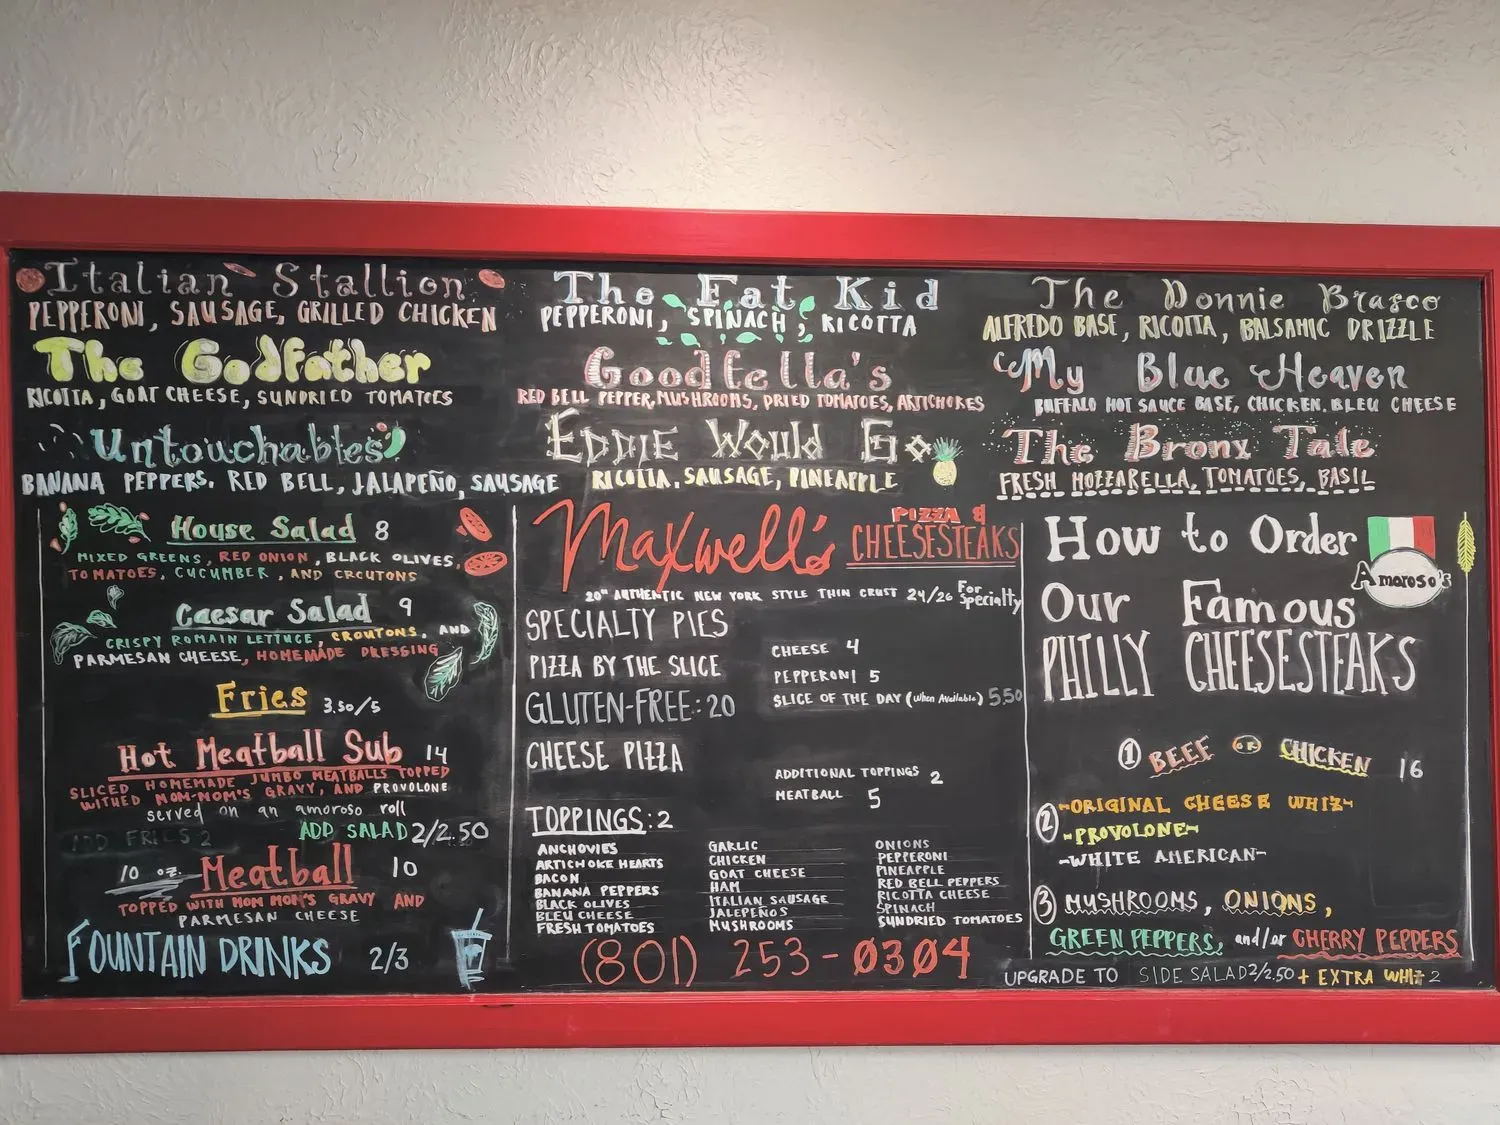 Italian Stallion
PEPPERONI, SAUSAGE, GRILLED CHICKEN
The Godfather
RICOTTA, GOAT CHEESE, SUNDRIED TOMATOES
Untouchables
BANANA PEPPERS. RED BELL, JALAPEÑO, SAUSAGE
The Fat Kid
PEPPERONI, SPINACH, RICOTTA
Goodfella's
RED BELL PEPPER, MUSHROOMS, DRIED TOMATOES, ARTICHOKES
EDDIE Would Go
RICOTTA, SAUSAGE, PINEAPPLE
The Donnie Brasco
ALFREDO BASE, RICOTTA, BALSAMIC DRIZZLE
My Blue Heaven
BUFFALO HOT SAUCE BASE, CHICKEN. BLEU CHEESE
The Bronx Tale
FRESH MOZZARELLA, TOMATOES, BASIL
House Salad 8
MIXED GREENS, RED ONION, BLACK OLIVES,
TOMATOES, CUCUMBER, AND CROUTONS
Caesar Salad 9
CRISPY ROMAIN LETTUCE, CROUTONS, AND
PARMESAN CHEESE, HOMEMADE DRESSING
Fries 3.50/5
Hot Meatball Sub 14
SLICED HOMEMADE JUMBO MEATBALLS TOPPED
WITHED MOM-MOM'S GRAVY, AND PROVOLONE
served on an amoroso roll
ADD FRIES 2 ADD SALAD 2/2.50
10 oz. Meatball 10
TOPPED WITH MOM MOM'S GRAVY AND
PARMESAN CHEESE
FOUNTAIN DRINKS 2/3
Maxwell's PIZZA &
CHEESESTEAKS
20" AUTHENTIC NEW YORK STYLE THIN CRUST 24/26 For Specialty
SPECIALTY PIES
PIZZA BY THE SLICE
CHEESE 4
PEPPERONI 5
SLICE OF THE DAY (When Available) 5.50
GLUTEN-FREE: 20
CHEESE PIZZA
ADDITIONAL TOPPINGS 2
MEATBALL 5
TOPPINGS: 2
ANCHOVIES
ARTICHOKE HEARTS
BACON
BANANA PEPPERS
BLACK OLIVES
BLEU CHEESE
FRESH TOMATOES
GARLIC
CHICKEN
GOAT CHEESE
HAM
ITALIAN SAUSAGE
JALEPEÑOS
MUSHROOMS
ONIONS
PEPPERONI
PINEAPPLE
RED BELL PEPPERS
RICOTTA CHEESE
SPINACH
SUNDRIED TOMATOES
(801) 253-0304
How to Order
Amoroso's
Our Famous
PHILLY CHEESESTEAKS
1 BEEF OR CHICKEN 16
2 -ORIGINAL CHEESE WHIZ-
-PROVOLONE-
-WHITE AMERICAN-
3 MUSHROOMS, ONIONS,
GREEN PEPPERS, and/or CHERRY PEPPERS
UPGRADE TO SIDE SALAD 2/2.50 + EXTRA WHIZ 2